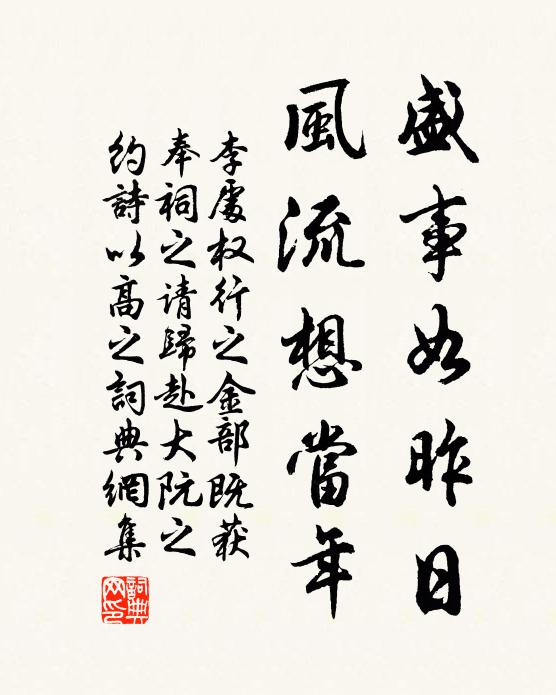 盛事如昨日
風流想當年
李處权行之金部既获
奉祠之请歸赴大阮之
約詩以高之詞典網集
詞典
网印